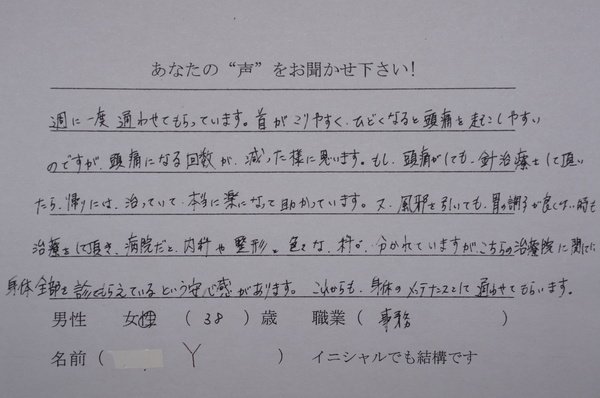 あなたの“声”をお聞かせ下さい!
週に一度 通わせてもらっています。首がこりやすく、ひどくなると頭痛を起こしやすい
のですが、頭痛になる回数が、減った様に思います。もし、頭痛がしても、針治療をして頂い
たら、帰りには、治っていて、本当に楽になって助かっています。又、風邪を引いても、胃の調子が良くない時も
治療をして頂き、病院だと、内科や整形と色々な、科が、分かれていますが、こちらの治療院に関しては
身体全部を診てもらえているという安心感があります。これからも、身体のメンテナンスとして通わせてもらいます。
男性 女性 ( 38 ) 歳 職業 ( 事務 )
名前 ( Y ) イニシャルでも結構です